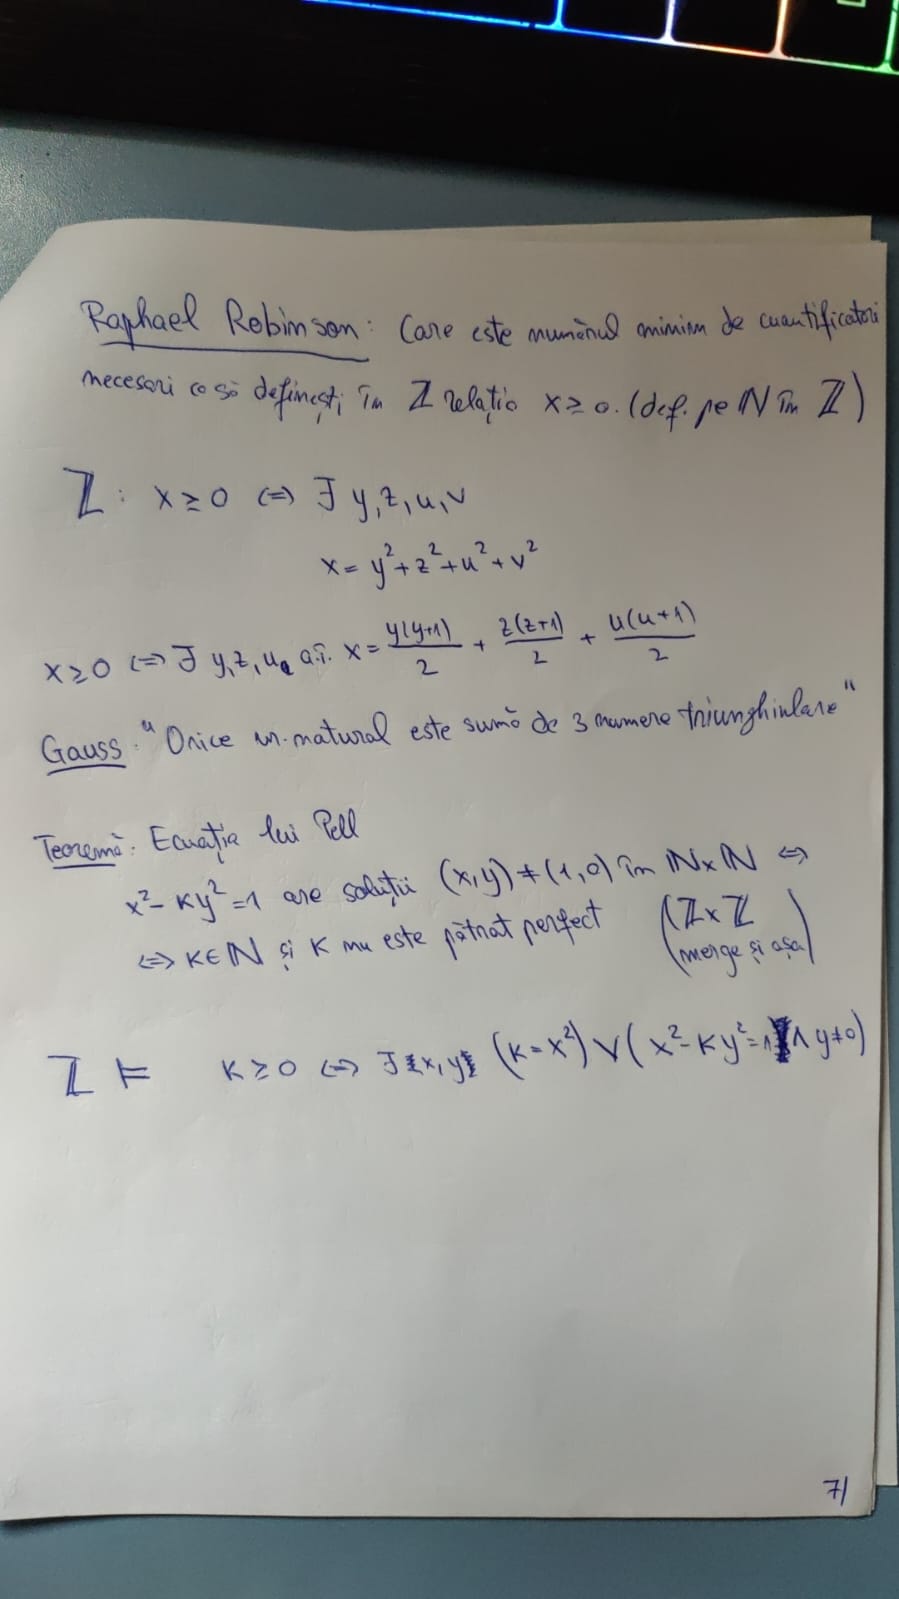 Raphael Robinson: Care este numărul minim de cuantificatori
necesari ca să definești în ℤ relația x ≥ 0. (def. pe ℕ în ℤ)
ℤ: x ≥ 0 (=) ∃ y, z, u, v
x = y² + z² + u² + v²
x ≥ 0 (=) ∃ y, z, u a.î. x = y(y+1)/2 + z(z+1)/2 + u(u+1)/2
Gauss. "Orice nr. natural este sumă de 3 numere triunghiulare"
Teoremă: Ecuația lui Pell
x² - Ky² = 1 are soluții (x, y) ≠ (1, 0) în ℕ×ℕ ⇔
⇔ K∈ℕ și K nu este pătrat perfect (ℤ×ℤ merge și așa)
ℤ ⊨ K ≥ 0 (=) ∃ x, y (K = x²) ∨ (x² - Ky² = 1 ∧ y ≠ 0)
7/